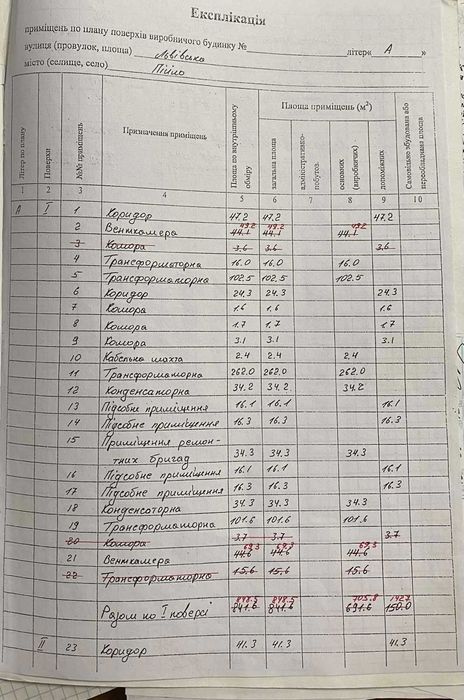 Експлікація
приміщень по плану поверхів виробничого будинку №
вулиця (провулок, площа) Львівська літера « А »
місто (селище, село) Пійло
Літер по плану Поверхи №№ приміщень Призначення приміщень Площа по внутрішньому обміру Площа приміщень (м²) загальна площа адміністративно-побутов. основних (виробничих) допоміжних Самовільно збудована або переобладнана площа
1 2 3 4 5 6 7 8 9 10
А I 1 Коридор 47.2 47.2 47.2
49.2 49.2 49.2
2 Венткамера 44.1 44.1 44.1
3 Комора 3.6 3.6 3.6
4 Трансформаторна 16.0 16.0 16.0
5 Трансформаторна 102.5 102.5 102.5
6 Коридор 24.3 24.3 24.3
7 Комора 1.6 1.6 1.6
8 Комора 1.7 1.7 1.7
9 Комора 3.1 3.1 3.1
10 Кабельна шахта 2.4 2.4 2.4
11 Трансформаторна 262.0 262.0 262.0
12 Конденсаторна 34.2 34.2 34.2
13 Підсобне приміщення 16.1 16.1 16.1
14 Підсобне приміщення 16.3 16.3 16.3
15 Приміщення ремон-
тних бригад 34.3 34.3 34.3
16 Підсобне приміщення 16.1 16.1 16.1
17 Підсобне приміщення 16.3 16.3 16.3
18 Конденсоторна 34.3 34.3 34.3
19 Трансформаторна 101.6 101.6 101.6
20 Комора 3.7 3.7 3.7
69.3 69.3 69.3
21 Венткамера 44.6 44.6 44.6
22 Трансформаторна 15.6 15.6 15.6
848.5 848.5 705.8 142.7
Разом по I поверсі 841.6 841.6 691.6 150.0
II 23 Коридор 41.3 41.3 41.3